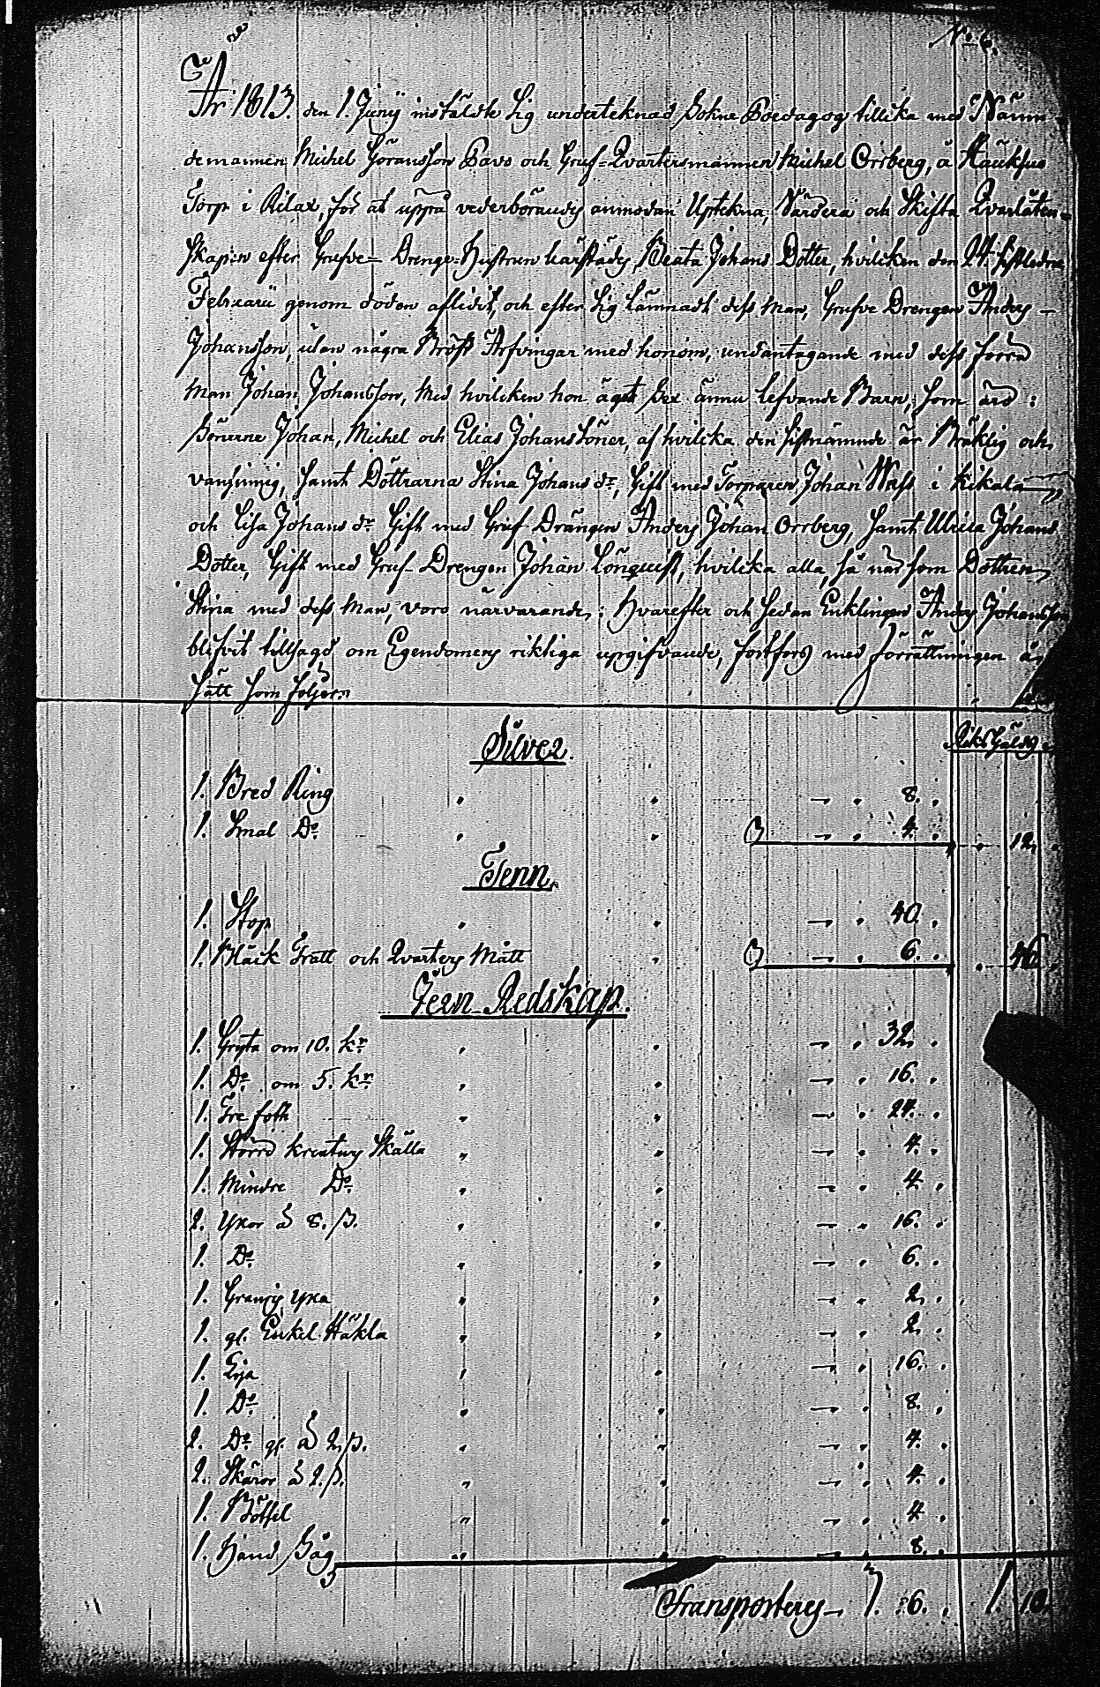 No 6.
År 1813. den 1. Junij instälde sig undertecknad Sokne Pædagog tillika med Nämn-
demannen Michel Göransson Pavo och Gruf-Qvartersmannen Michel Orrberg, å
Torp i Rilax, för at uppå vederbörandes anmodan Uptekna, Värdera och Skifta Qvarlåten-
skapen efter Grufve-Drenge-Hustrun härstädes, Beata Johans Dotter, hvilcken den 24. sistledne
Februarii genom döden aflidit, och efter sig lämnadt dess Man, Grufve Drengen Anders
Johansson, utan några Bröst Arfvingar med honom, undantagande med dess förra
Man Johan Johansson, med hvilcken hon äget Sex ännu lefvande Barn, som äro:
Sönerne Johan, Michel och Elias Johans Söner, af hvilcka den sistnämnde är Bräklig och
vansinnig, samt Döttrarna Stina Johans dr, Gift med Torparen Johan Wass i Kikala
och Lisa Johans dr Gift med Gruf Drängen Anders Johan Orrberg, samt Ulrica Johans
Dotter, Gift med Gruf-Drengen Johan Lönquist, hvilcka alla, så när som Dottren
Stina med dess Man, voro närvarande; Hvarefter och sedan Enklingen Anders Johansson
blifvit tillsagd om Egendomens riktiga upgifvande, fortfors med Förrättningen å
sätt som följer:
Riks Gälds
Silver
1. Bred Ring " " — " 8. "
1. Smal Do " " — " 4. " 12.
Tenn
1. Stop " " — " 40. "
1. Bläck Tratt och Qvarters Mått " — " 6. " 46.
Jern-Redskap.
1. Gryta om 10. kr " " — " 32. "
1. Do om 5. kr " " — " 16. "
1. Tre foth " " — " 24. "
1. Större kreaturs Skälla " " — " 4. "
1. Mindre Do " " — " 4. "
2. Yxor à 8. ß. " " — " 16. "
1. Do " " — " 6. "
1. yxa " " — " 2. "
1. gl. Enkel Häkla " " — " 2. "
1. Lija " " — " 16. "
1. Do " " — " 8. "
2. Do gl. à 2. ß. " " — " 4. "
2. Skäror à 2. ß. " " — " 4. "
1. " " — " 4. "
1. Hand Såg " " — " 8. "
Transporteres — 3. 6. " 1. 10.